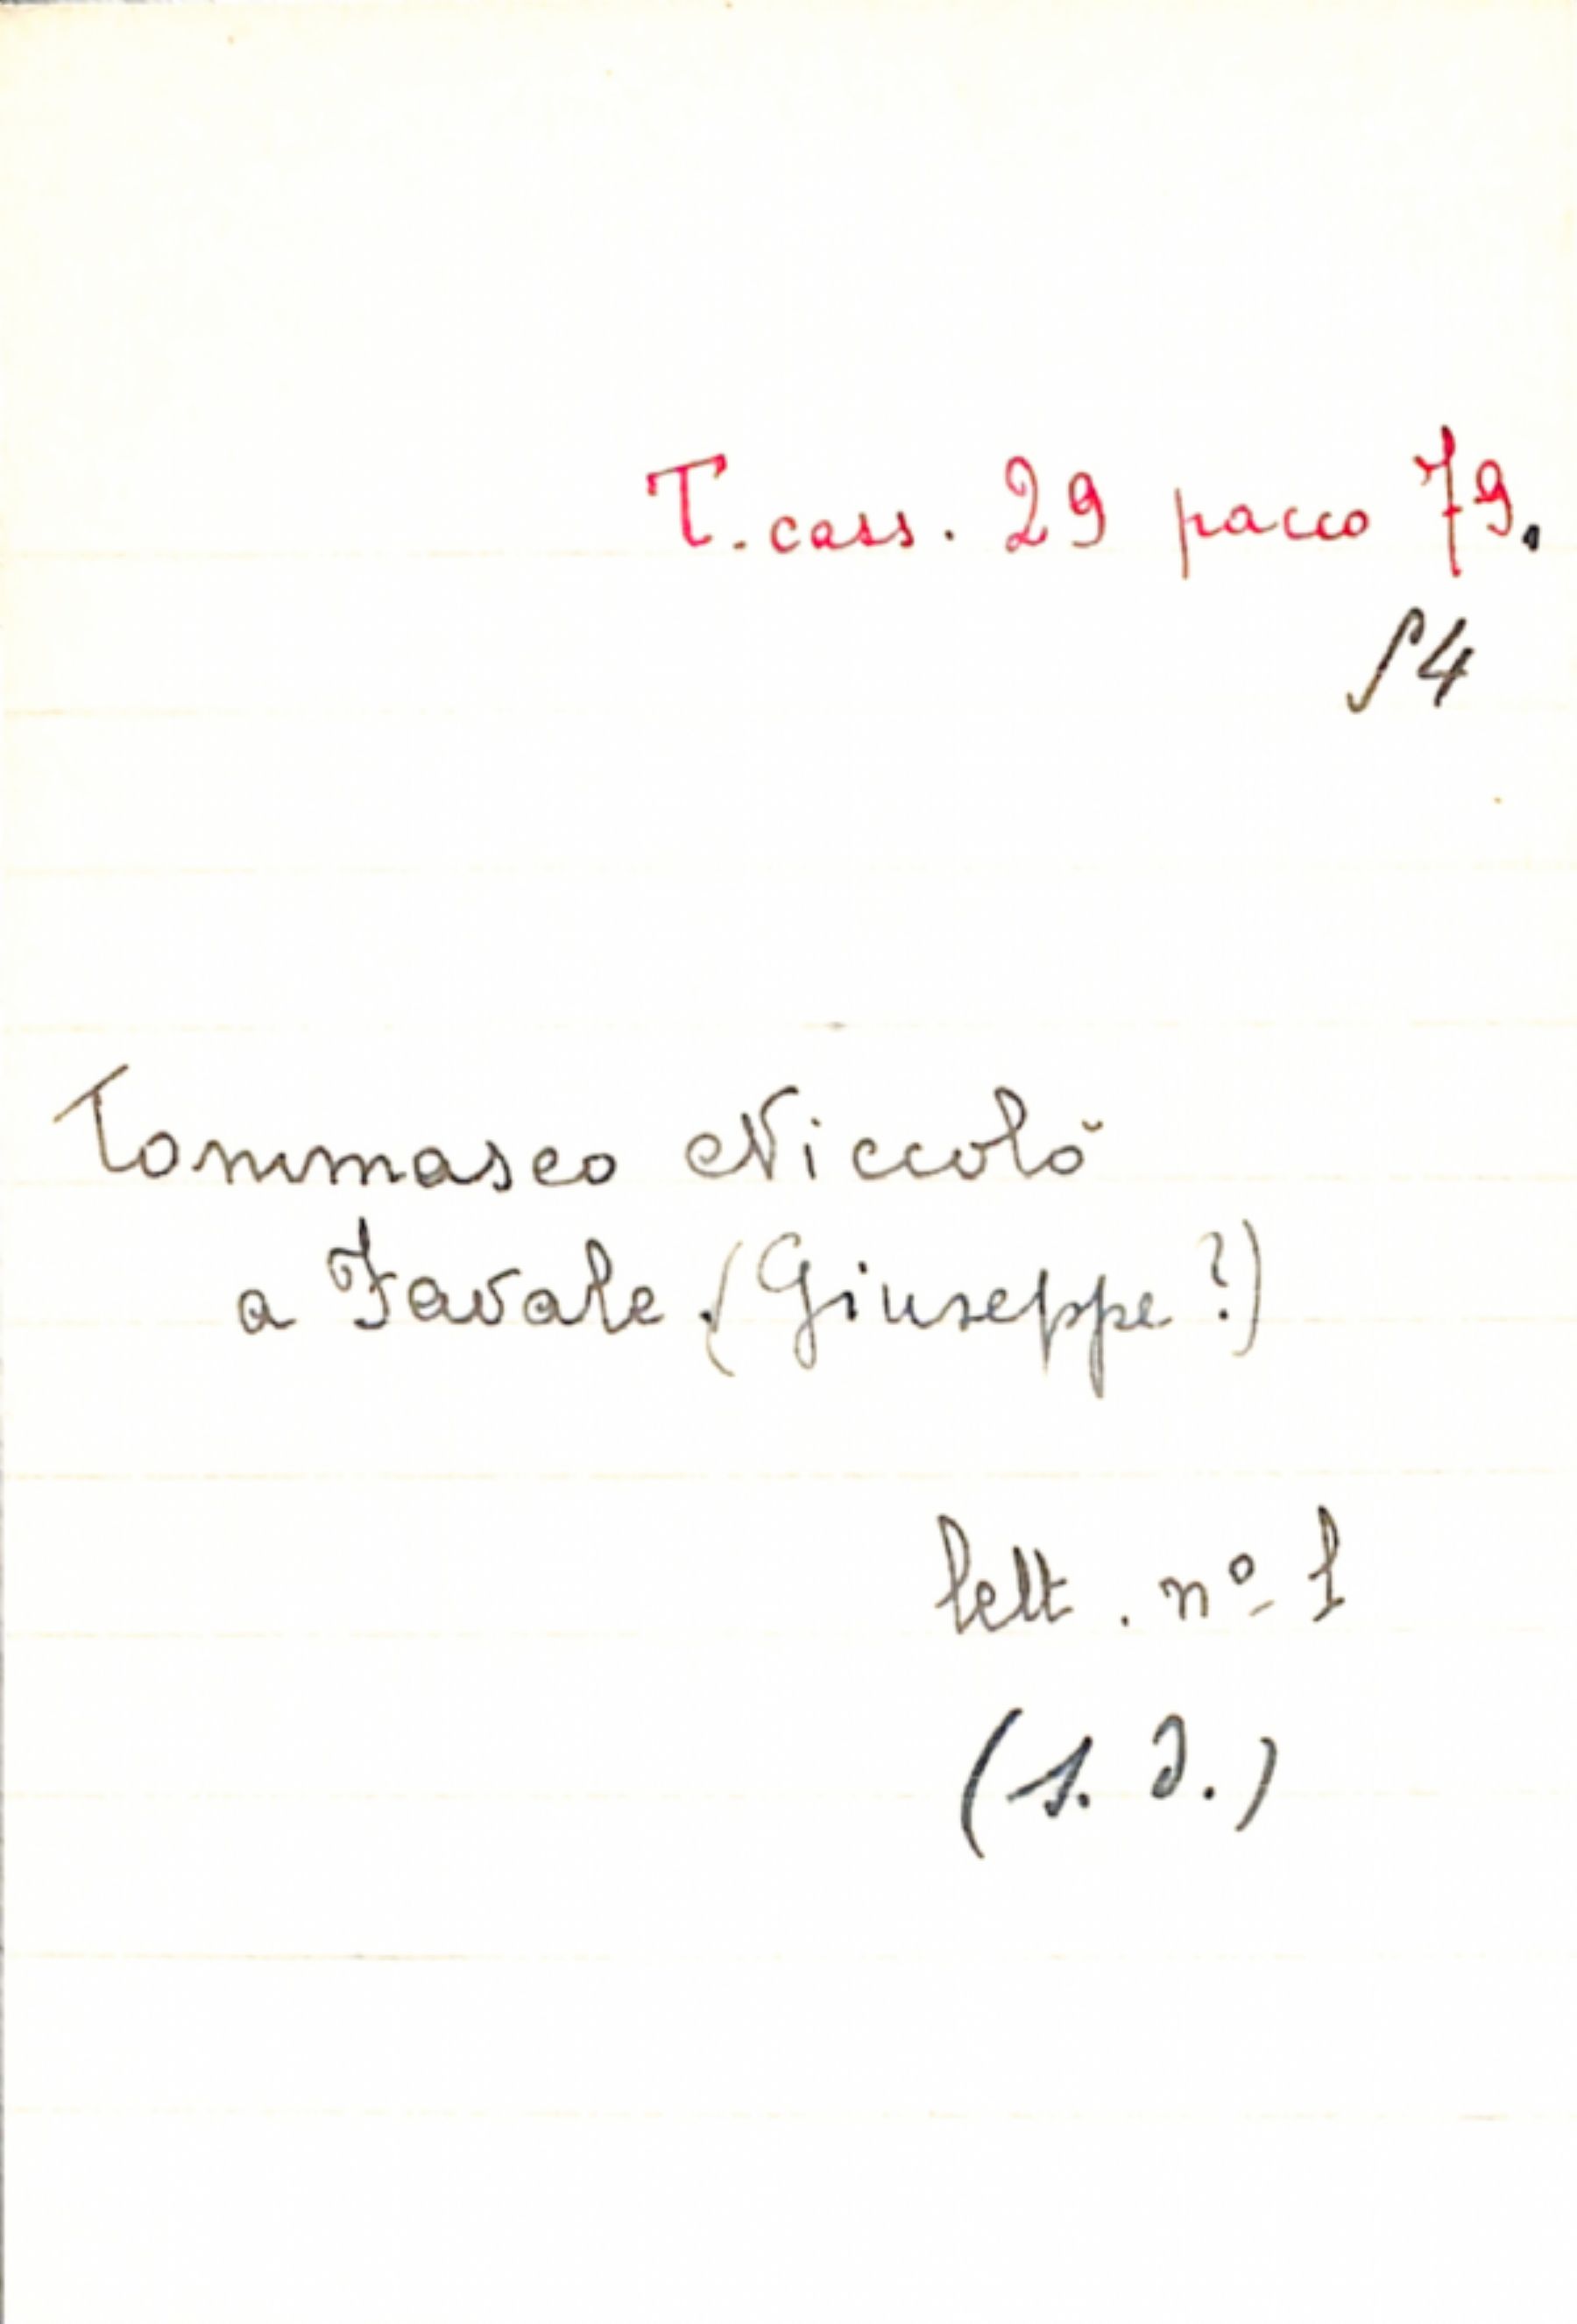 T. cass. 29 pacco 79.
∫4
Tommaseo Niccolò
a Favale (Giuseppe?)
lett. nº 1
(s. d.)